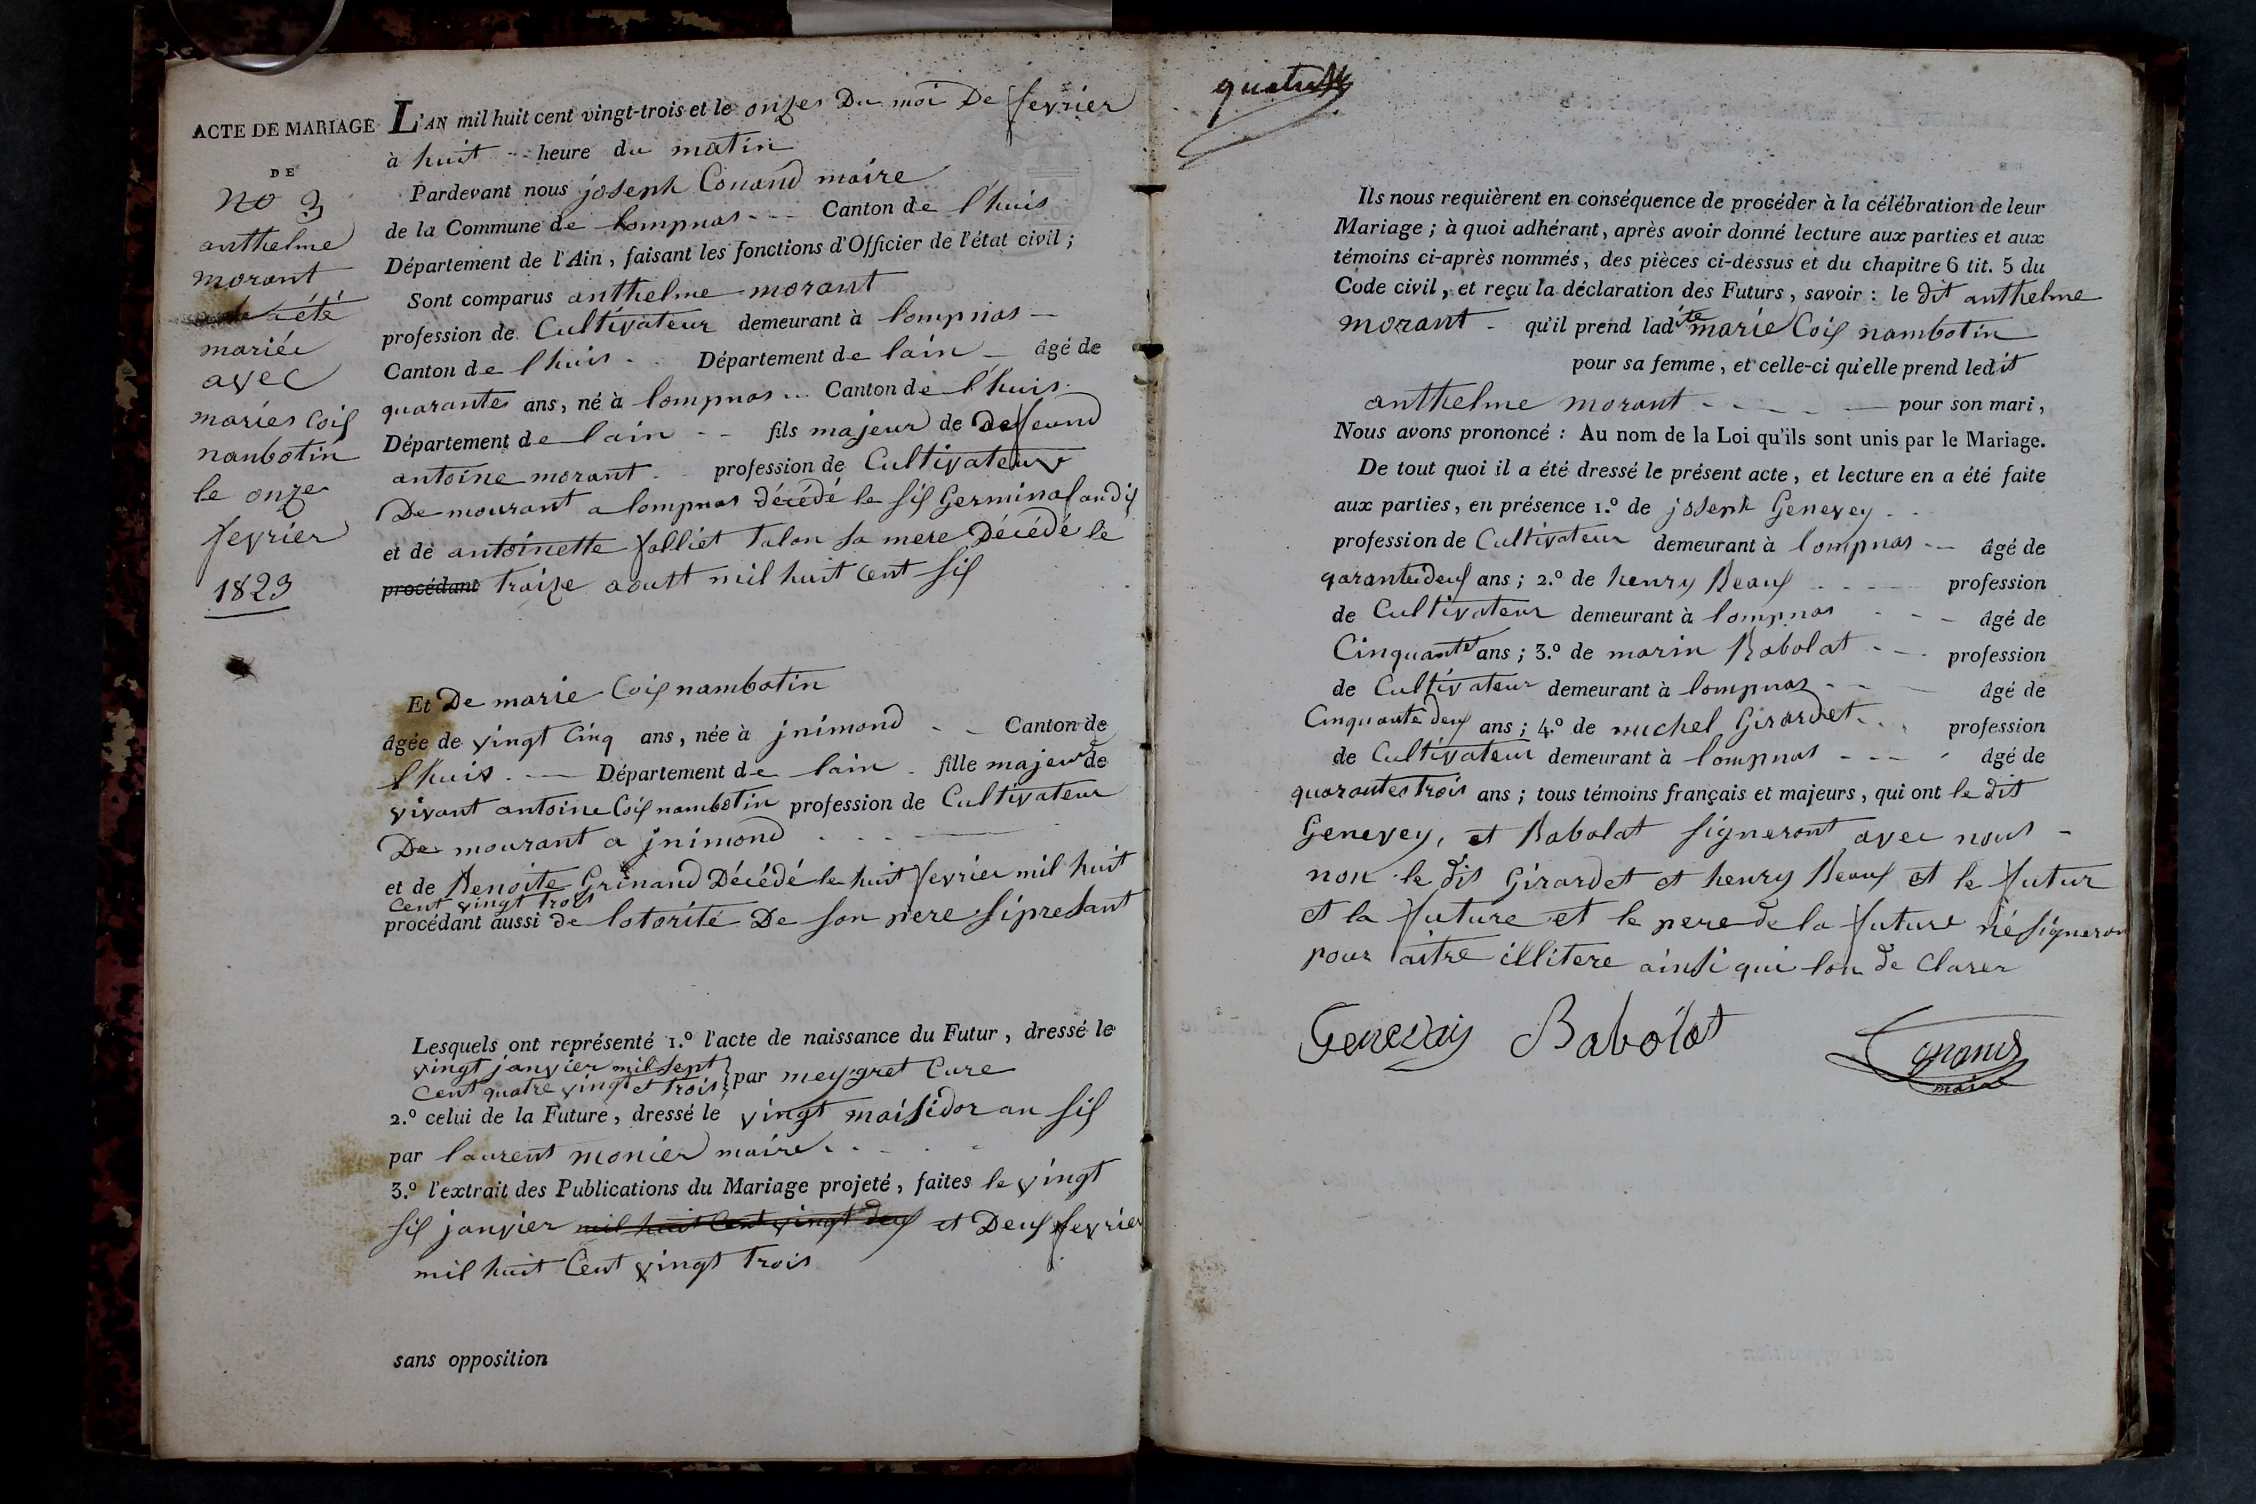 ACTE DE MARIAGE
DE
No 3
anthelme
morant
a été
mariée
avec
maries Coix
nanbotin
le onze
fevrier
1823
L'AN mil huit cent vingt-trois et le onzes Du moi De fevrier
à huit heure du matin
Pardevant nous joseph Conand maire
de la Commune de lompnas Canton de l'huis
Département de l'Ain, faisant les fonctions d'Officier de l'état civil;
Sont comparus anthelme morant
profession de Cultivateur demeurant à lompnas
Canton de l'huis Département de lain âgé de
quarante ans, né à lompnas Canton de l'huis
Département de lain fils majeur de defeund
antoine morant profession de Cultivateur
De mourant a lompnas décédé le six Germinal an dix
et de antoinette folliet talon sa mere Décédé le
procédant traize aoutt mil huit cent six
Et De marie Coix nambotin
âgée de vingt Cinq ans, née à jnimond Canton de
l'huis Département de lain fille majeur de
vivant antoine Coix nambotin profession de Cultivateur
De mourant a jnimond
et de Benoite Grinand Décédé le huit fevrier mil huit
Cent vingt trois
procédant aussi de lotorité De son pere si presant
Lesquels ont représenté 1.º l'acte de naissance du Futur, dressé le
vingt janvier mil sept
Cent quatre vingt et trois par meygret Cure
2.º celui de la Future, dressé le vingt maisidor an six
par laurent monier maire
3.º l'extrait des Publications du Mariage projeté, faites le vingt
six janvier mil huit Cent vingt deux et Deux fevrier
mil huit Cent vingt trois
sans opposition
Ils nous requièrent en conséquence de procéder à la célébration de leur
Mariage; à quoi adhérant, après avoir donné lecture aux parties et aux
témoins ci-après nommés, des pièces ci-dessus et du chapitre 6 tit. 5 du
Code civil, et reçu la déclaration des Futurs, savoir: le dit anthelme
morant qu'il prend ladite marie Coix nambotin
pour sa femme, et celle-ci qu'elle prend ledit
anthelme morant pour son mari,
Nous avons prononcé: Au nom de la Loi qu'ils sont unis par le Mariage.
De tout quoi il a été dressé le présent acte, et lecture en a été faite
aux parties, en présence 1.º de joseph Genevey
profession de Cultivateur demeurant à lompnas âgé de
qarantedeux ans; 2.º de henry Beaux profession
de Cultivateur demeurant à lompnas âgé de
Cinquante ans; 3.º de marin Babolat profession
de Cultivateur demeurant à lompnas âgé de
Cinquante deux ans; 4.º de michel Girardet profession
de Cultivateur demeurant à lompnas âgé de
quarantes trois ans; tous témoins français et majeurs, qui ont le dit
Genevey, et Babolat signeront avec nous
non le dit Girardet et henry Beaux et le futur
et la future et le pere de la future né signeron
pour aitre illitere ainsi qui lon de Clarer
Genevay Babolat Conand
maire